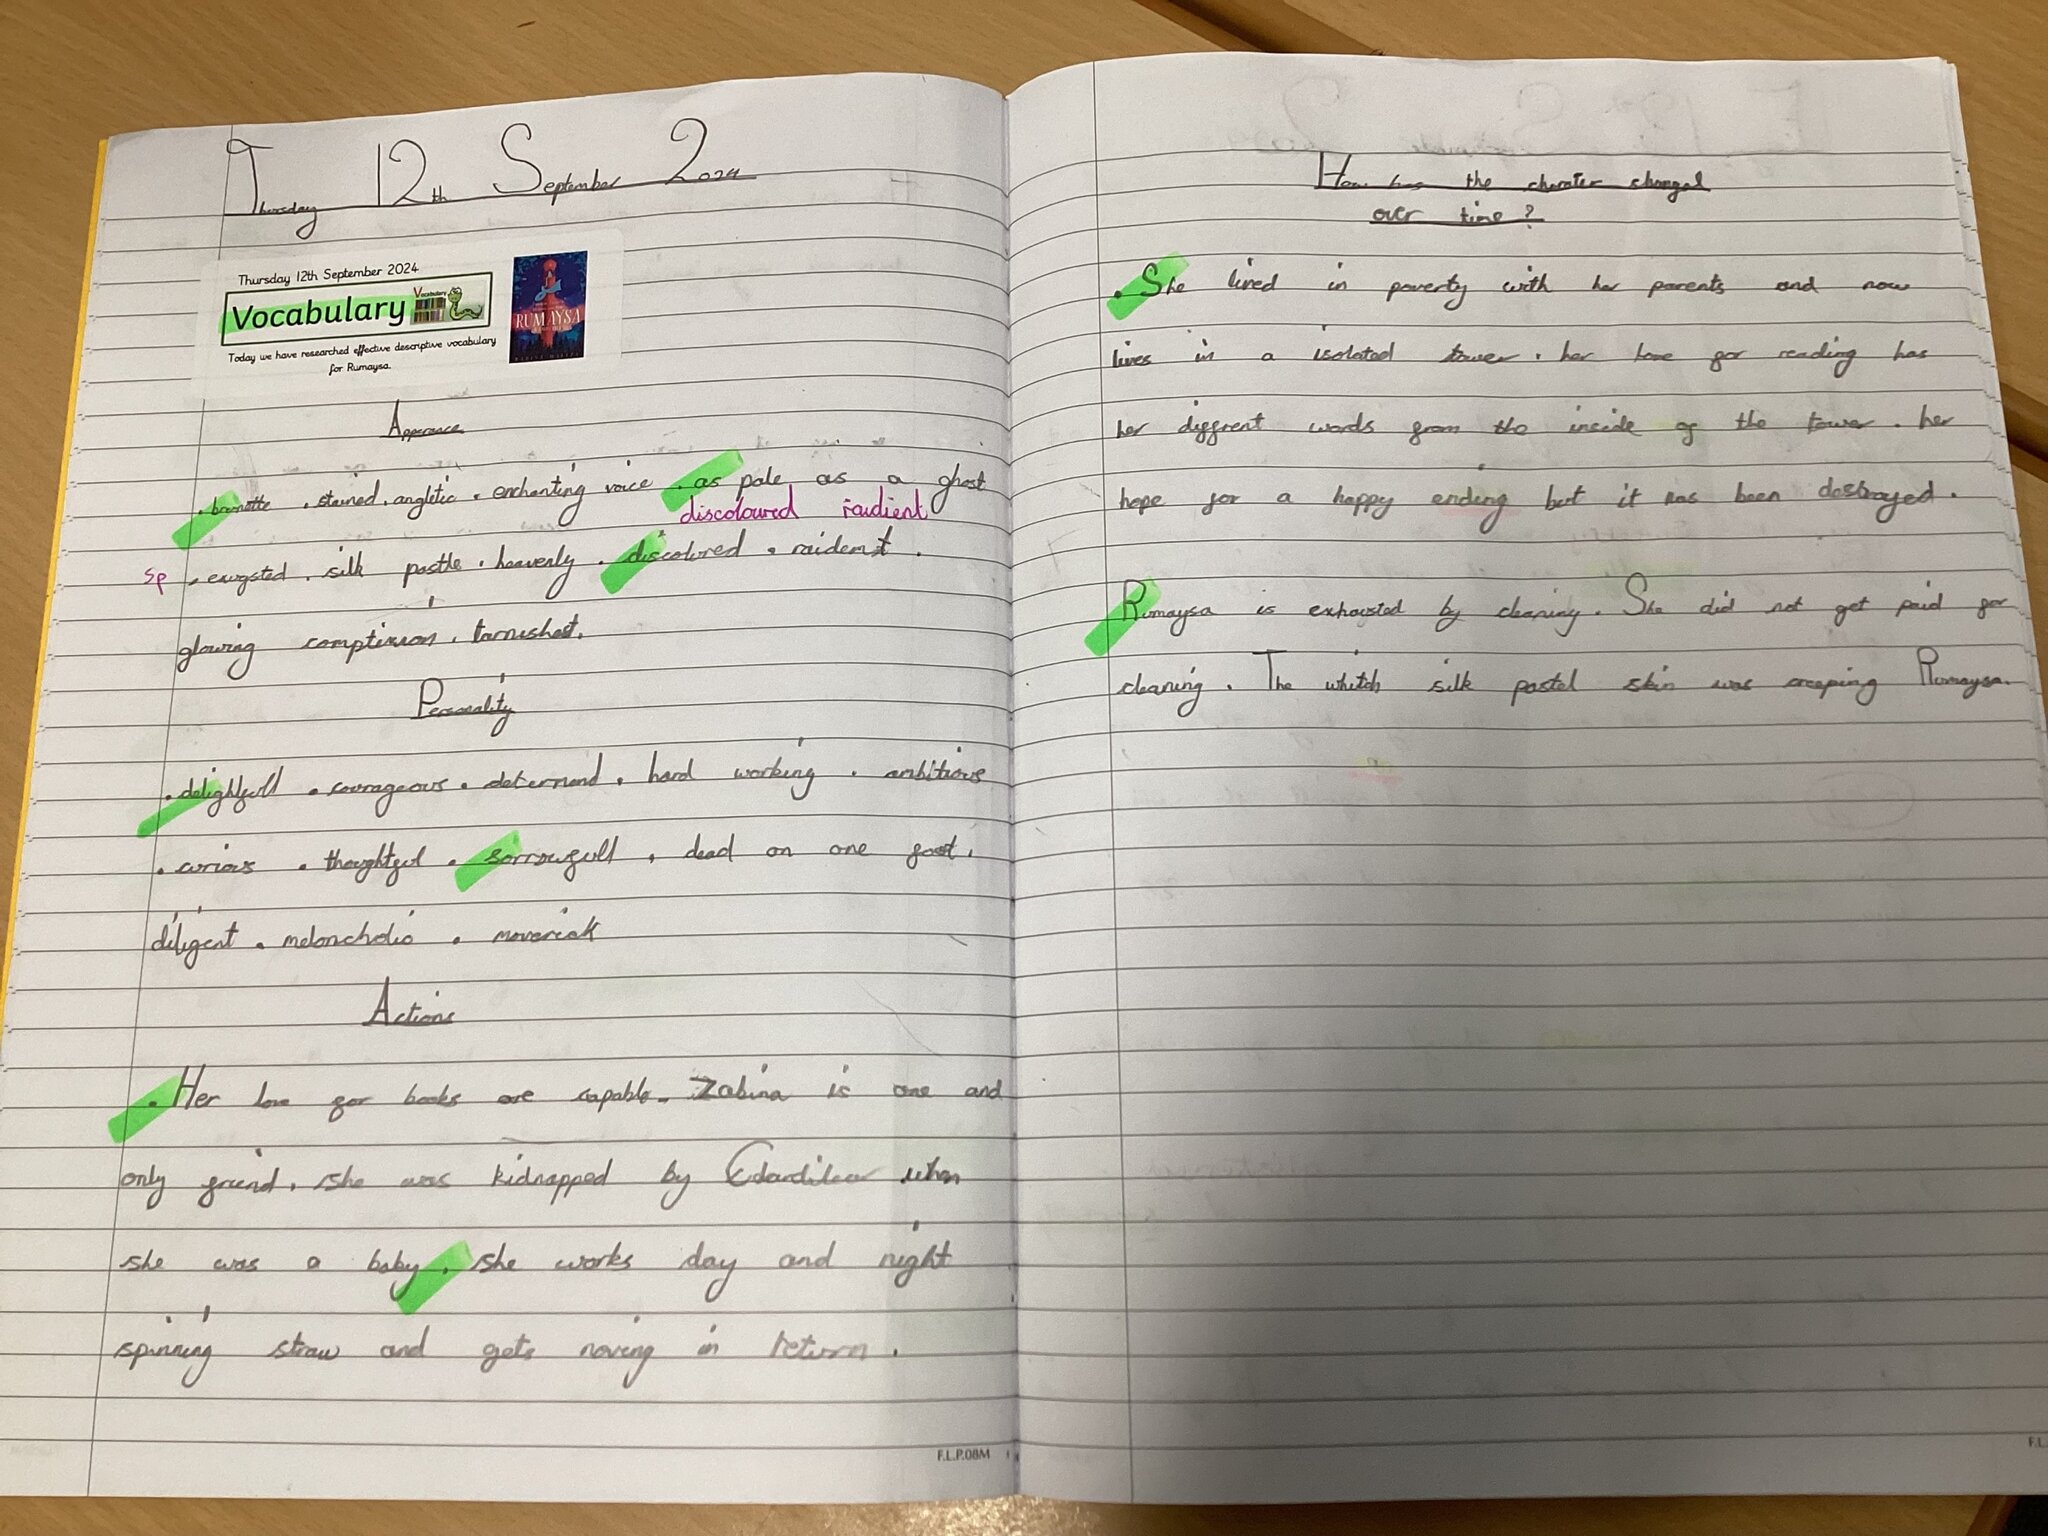 Thursday 12th September 2024
Thursday 12th September 2024
Vocabulary
Vocabulary
Today we have researched effective descriptive vocabulary
for Rumaysa.
RUMAYSA
Apperance
. brunette . stained . angletic . enchanting voice . as pale as a ghost
discoloured raidient
sp . exogsted . silk pastle . heavenly . discolored . raidemt .
glowing comptinion . tarneshed.
Personality
. delighfull . courageous . determend . hard working . ambitious
. curious . thoughtful . sorrowfull . dead on one foot .
diligent . meloncholic . maverick
Actions
. Her love for books are capable. Zabina is one and
only freind . she was kidnapped by when
she was a baby . she works day and night
spinning straw and gets noving in return .
F.L.P.08M
How has the charater changed
over time ?
. She lived in poverty with her parents and now
lives in a isolated tower . her love for reading has
her diffrent words from the inside of the tower . her
hope for a happy ending but it has been destroyed .
Rumaysa is exhausted by cleaning . She did not get paid for
cleaning . The whitch silk pastel skin was creeping Rumaysa.
F.L